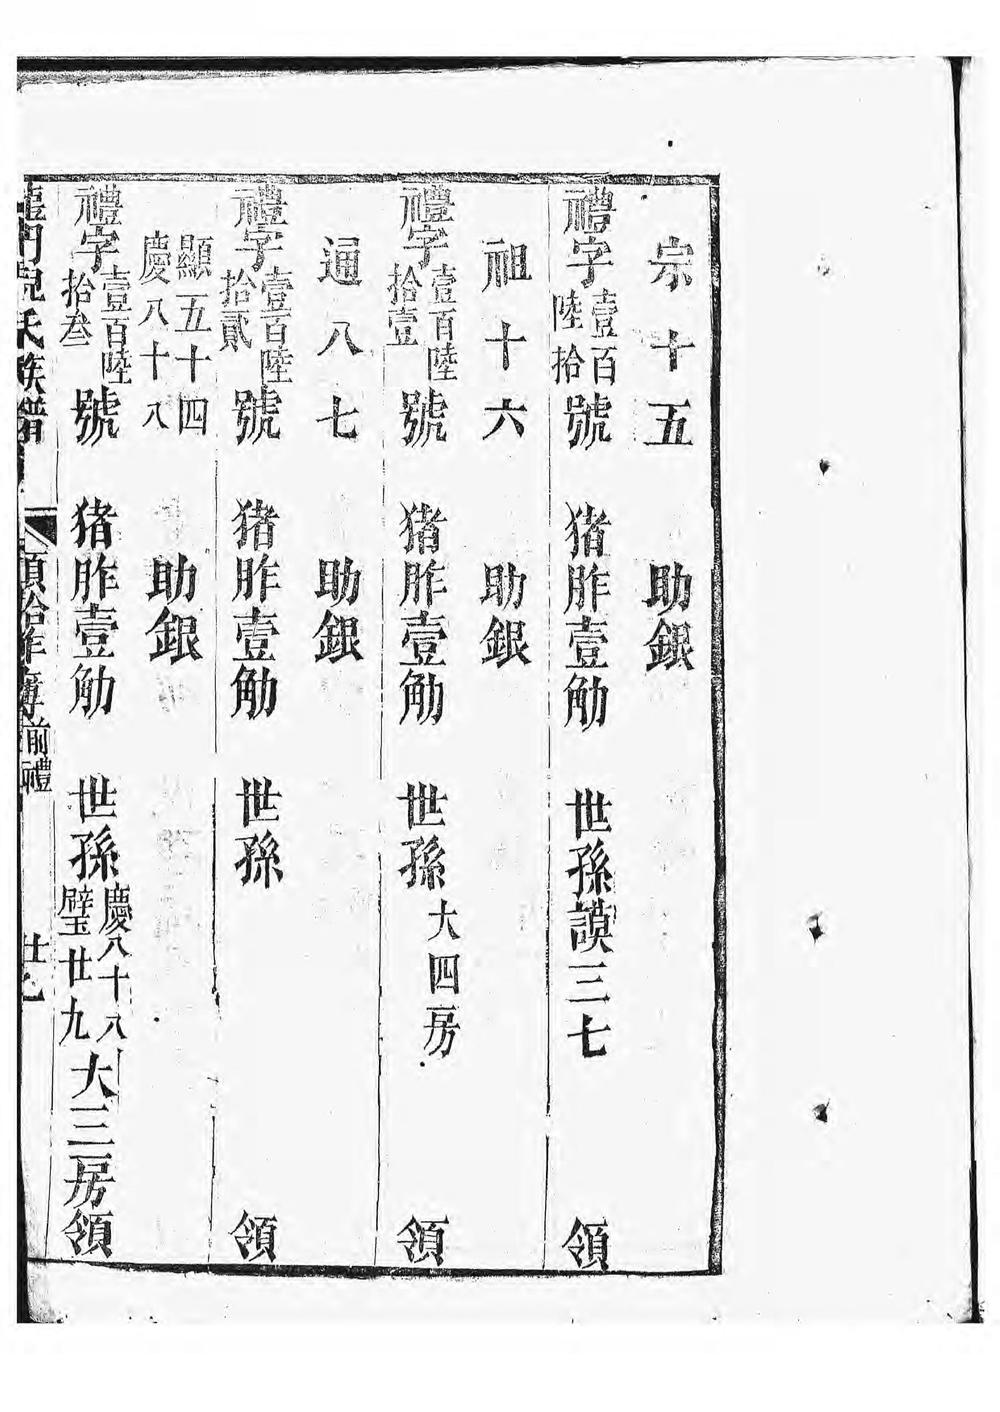 宗十五　助銀
禮字壹百陸拾號　猪胙壹觔　世孫謨三七　領
祖十六　助銀
禮字壹百陸拾壹號　猪胙壹觔　世孫大四房　領
通八七　助銀
禮字壹百陸拾貳號　猪胙壹觔　世孫　領
顯五十四
慶八十八　助銀
禮字壹百陸拾叁號　猪胙壹觔　世孫慶八十八璧廿九大三房領
門倪氏族譜　頒給胙簿前禮